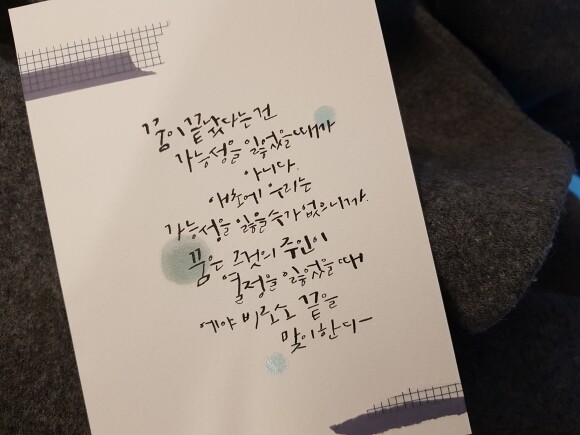 꿈이 끝났다는 건
가능성을 잃었을 때가
아니다.
애초에 우리는
가능성을 잃을 수가 없으니까.
꿈은 그것의 주인이
열정을 잃었을 때
에야 비로소 끝을
맞이한다-